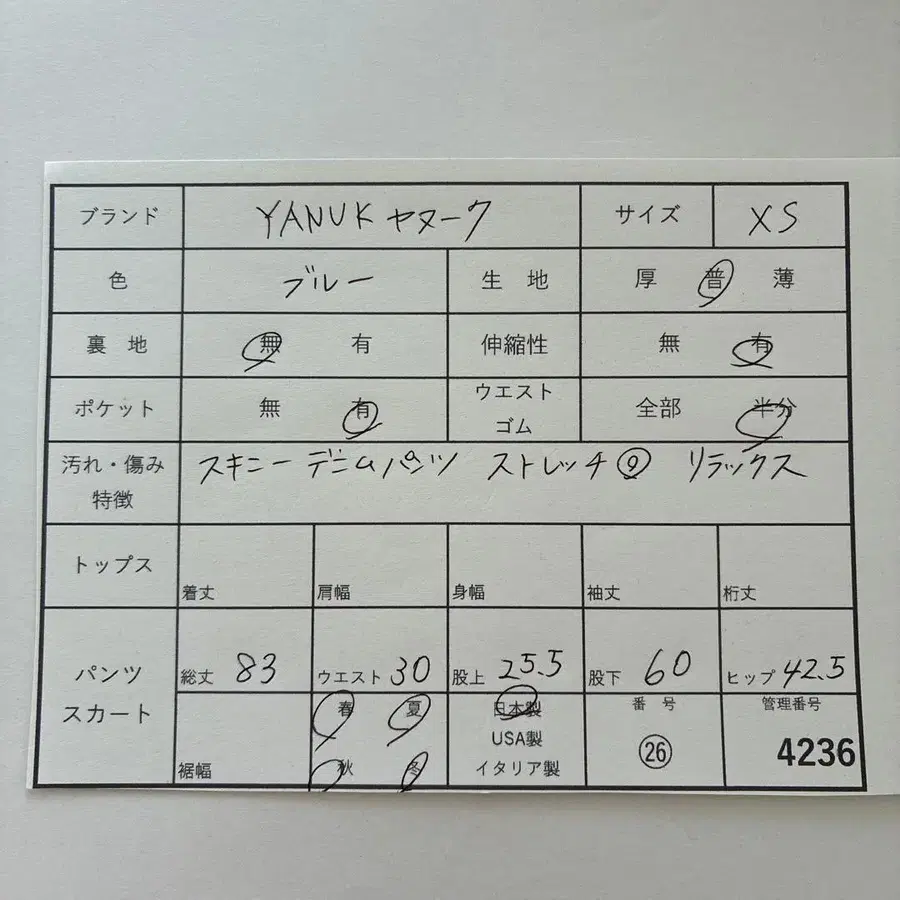 ブランド YANUK ヤヌーク サイズ XS
色 ブルー 生 地 厚 普 薄
裏 地 無 有 伸縮性 無 有
ポケット 無 有 ウエスト
ゴム 全部 半分
汚れ・傷み
特徴 スキニー デニムパンツ ストレッチ⑨ リラックス
トップス 着丈 肩幅 身幅 袖丈 裄丈
パンツ
スカート 総丈 83 ウエスト 30 股上 25.5 股下 60 ヒップ 42.5
裾幅 春 夏 秋 冬
日本製
USA製
イタリア製
番 号
㉖
管理番号
4236